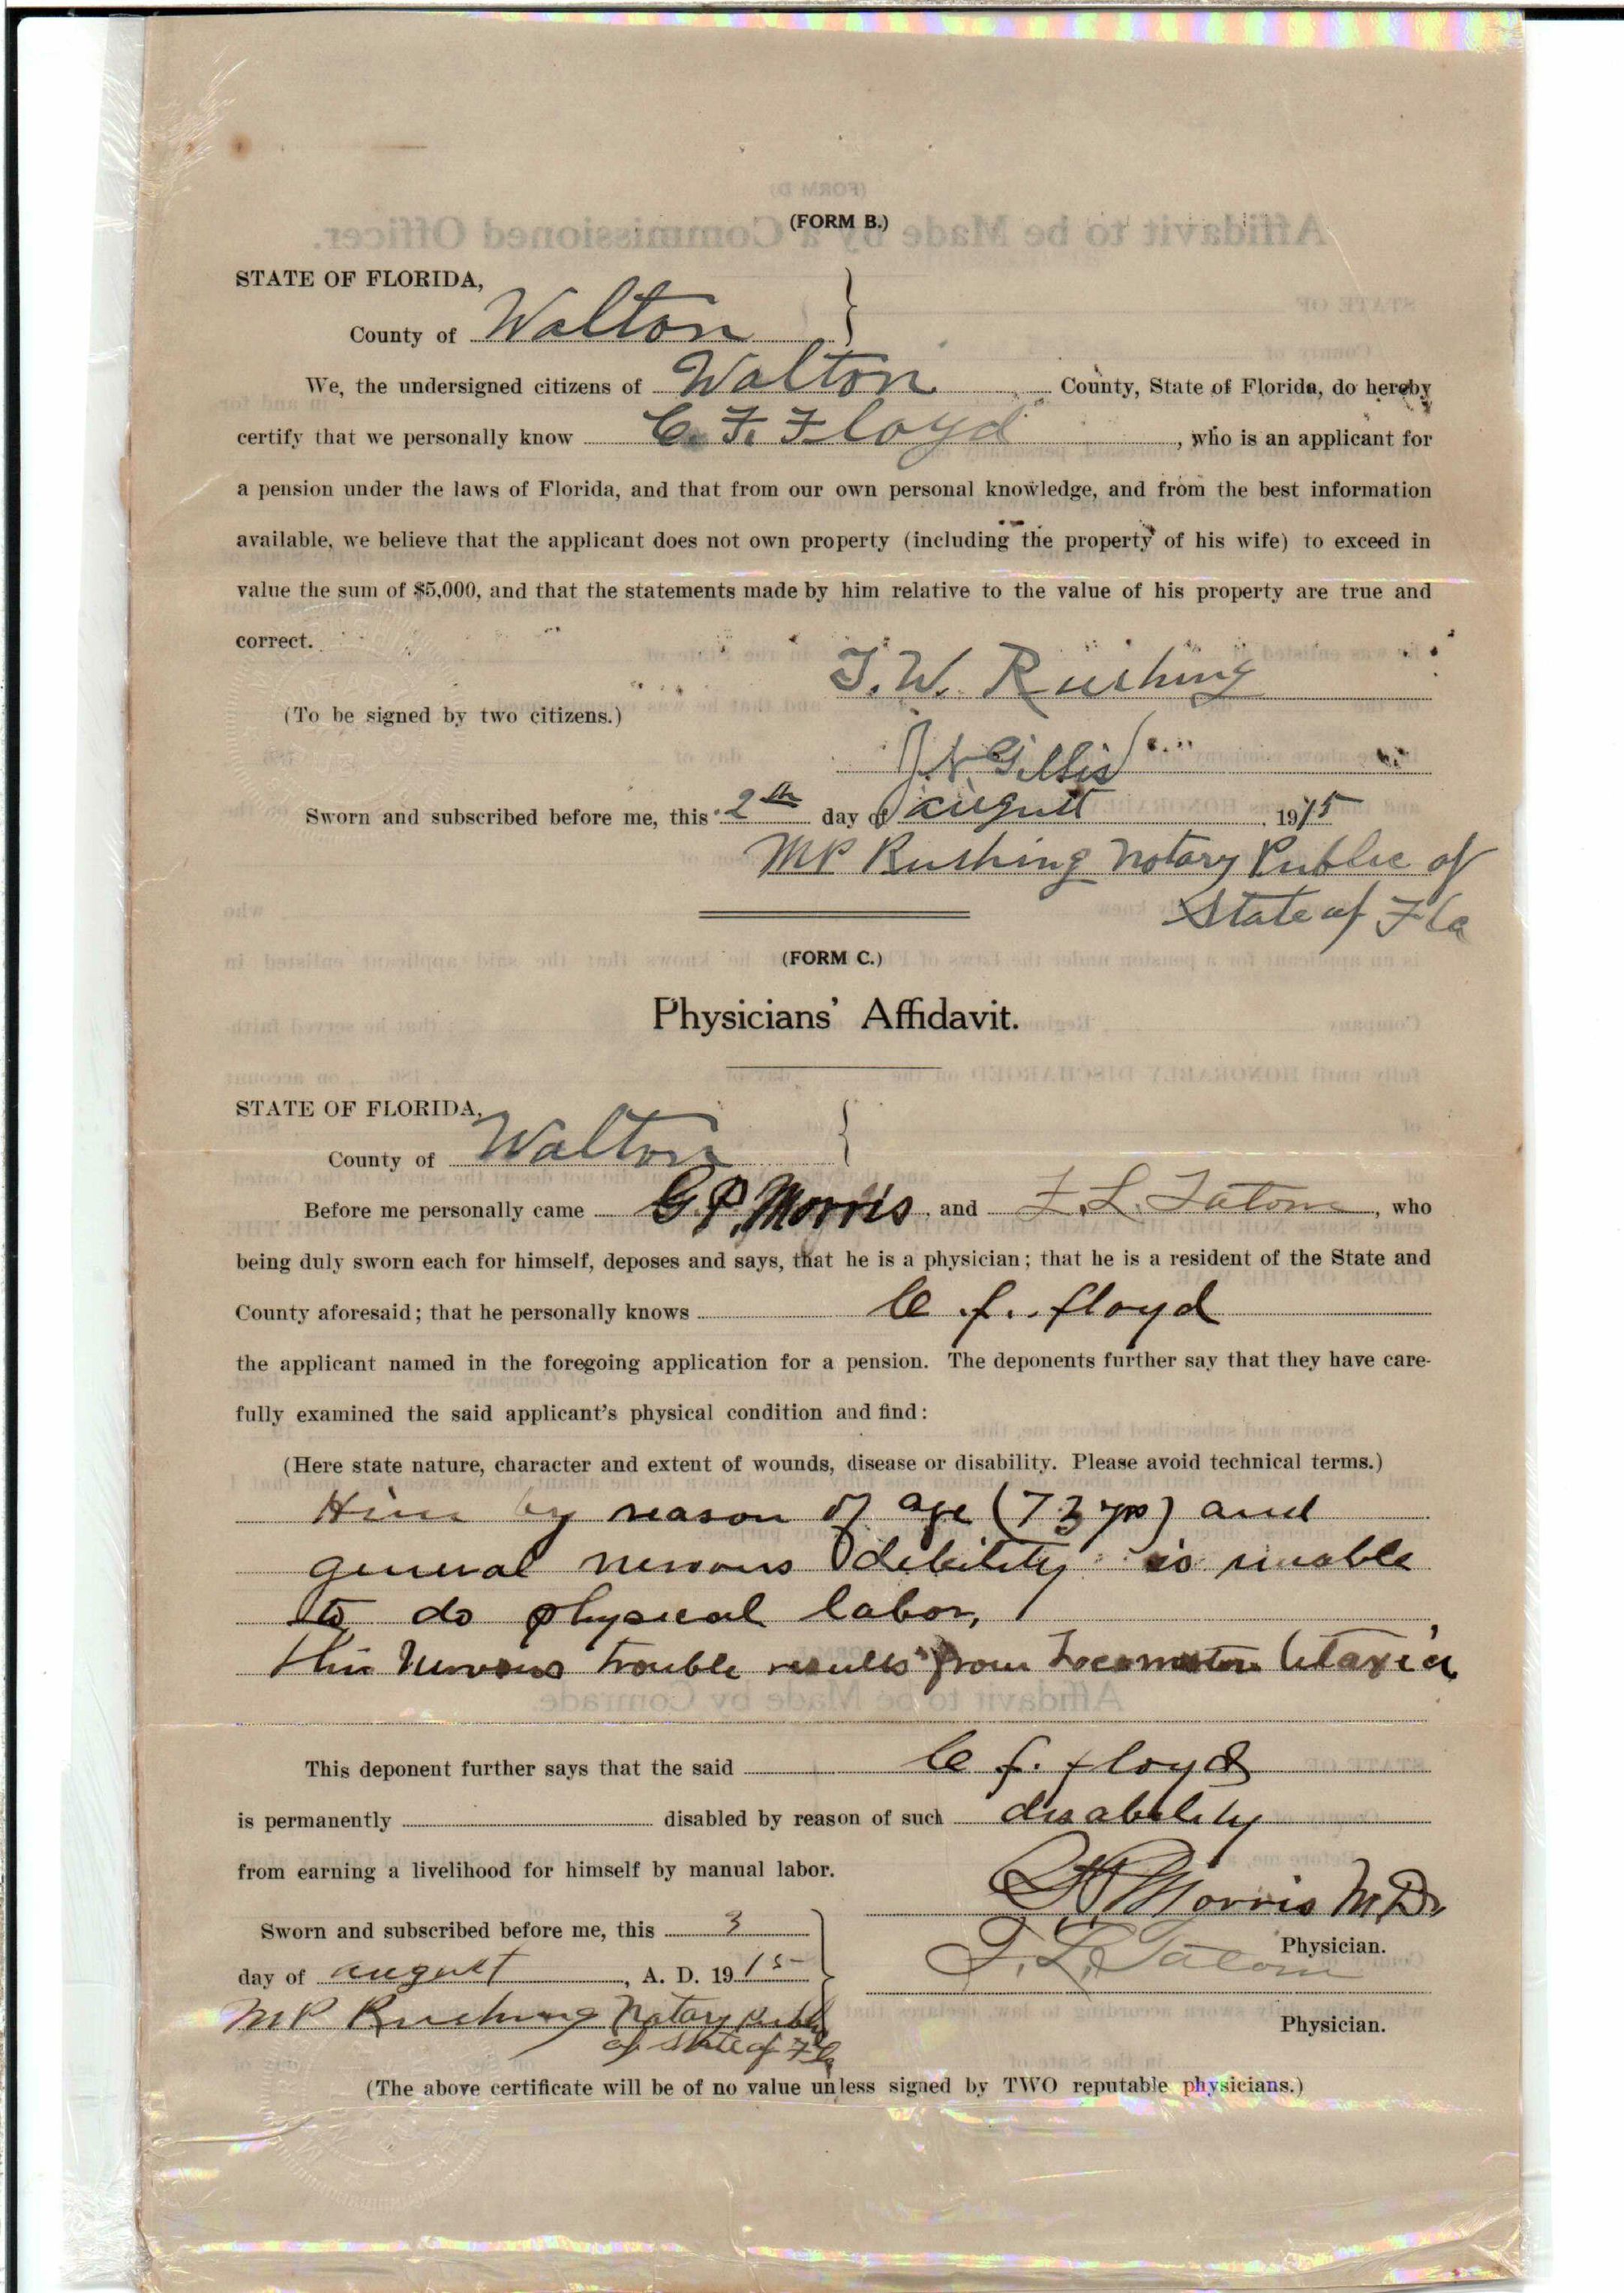 (FORM B.)
STATE OF FLORIDA,
County of Walton
We, the undersigned citizens of Walton County, State of Florida, do hereby
certify that we personally know C. F. Floyd, who is an applicant for
a pension under the laws of Florida, and that from our own personal knowledge, and from the best information
available, we believe that the applicant does not own property (including the property of his wife) to exceed in
value the sum of $5,000, and that the statements made by him relative to the value of his property are true and
correct.
T. W. Rushing
(To be signed by two citizens.)
J N Gillis
Sworn and subscribed before me, this 2th day of august 1915
MP Rushing Notary Public of
State of Fla
(FORM C.)
Physicians' Affidavit.
STATE OF FLORIDA,
County of Walton
Before me personally came G. P. Morris, and F. L. Tatom, who
being duly sworn each for himself, deposes and says, that he is a physician; that he is a resident of the State and
County aforesaid; that he personally knows C f. floyd
the applicant named in the foregoing application for a pension. The deponents further say that they have care-
fully examined the said applicant's physical condition and find:
(Here state nature, character and extent of wounds, disease or disability. Please avoid technical terms.)
by reason of age (73 yrs) and
general nervous debility is unable
to do physical labor,
this Nervous trouble results from Locomotor Ataxia
This deponent further says that the said C f. floyd
is permanently disabled by reason of such disability
from earning a livelihood for himself by manual labor.
G P Morris M.D.
Sworn and subscribed before me, this 3
Physician.
day of august, A. D. 1915
F. L. Tatom
MP Rushing Notary Public
of State of Fla
Physician.
(The above certificate will be of no value unless signed by TWO reputable physicians.)